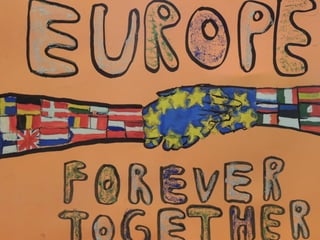 EUROPE
FOREVER
TOGETHER